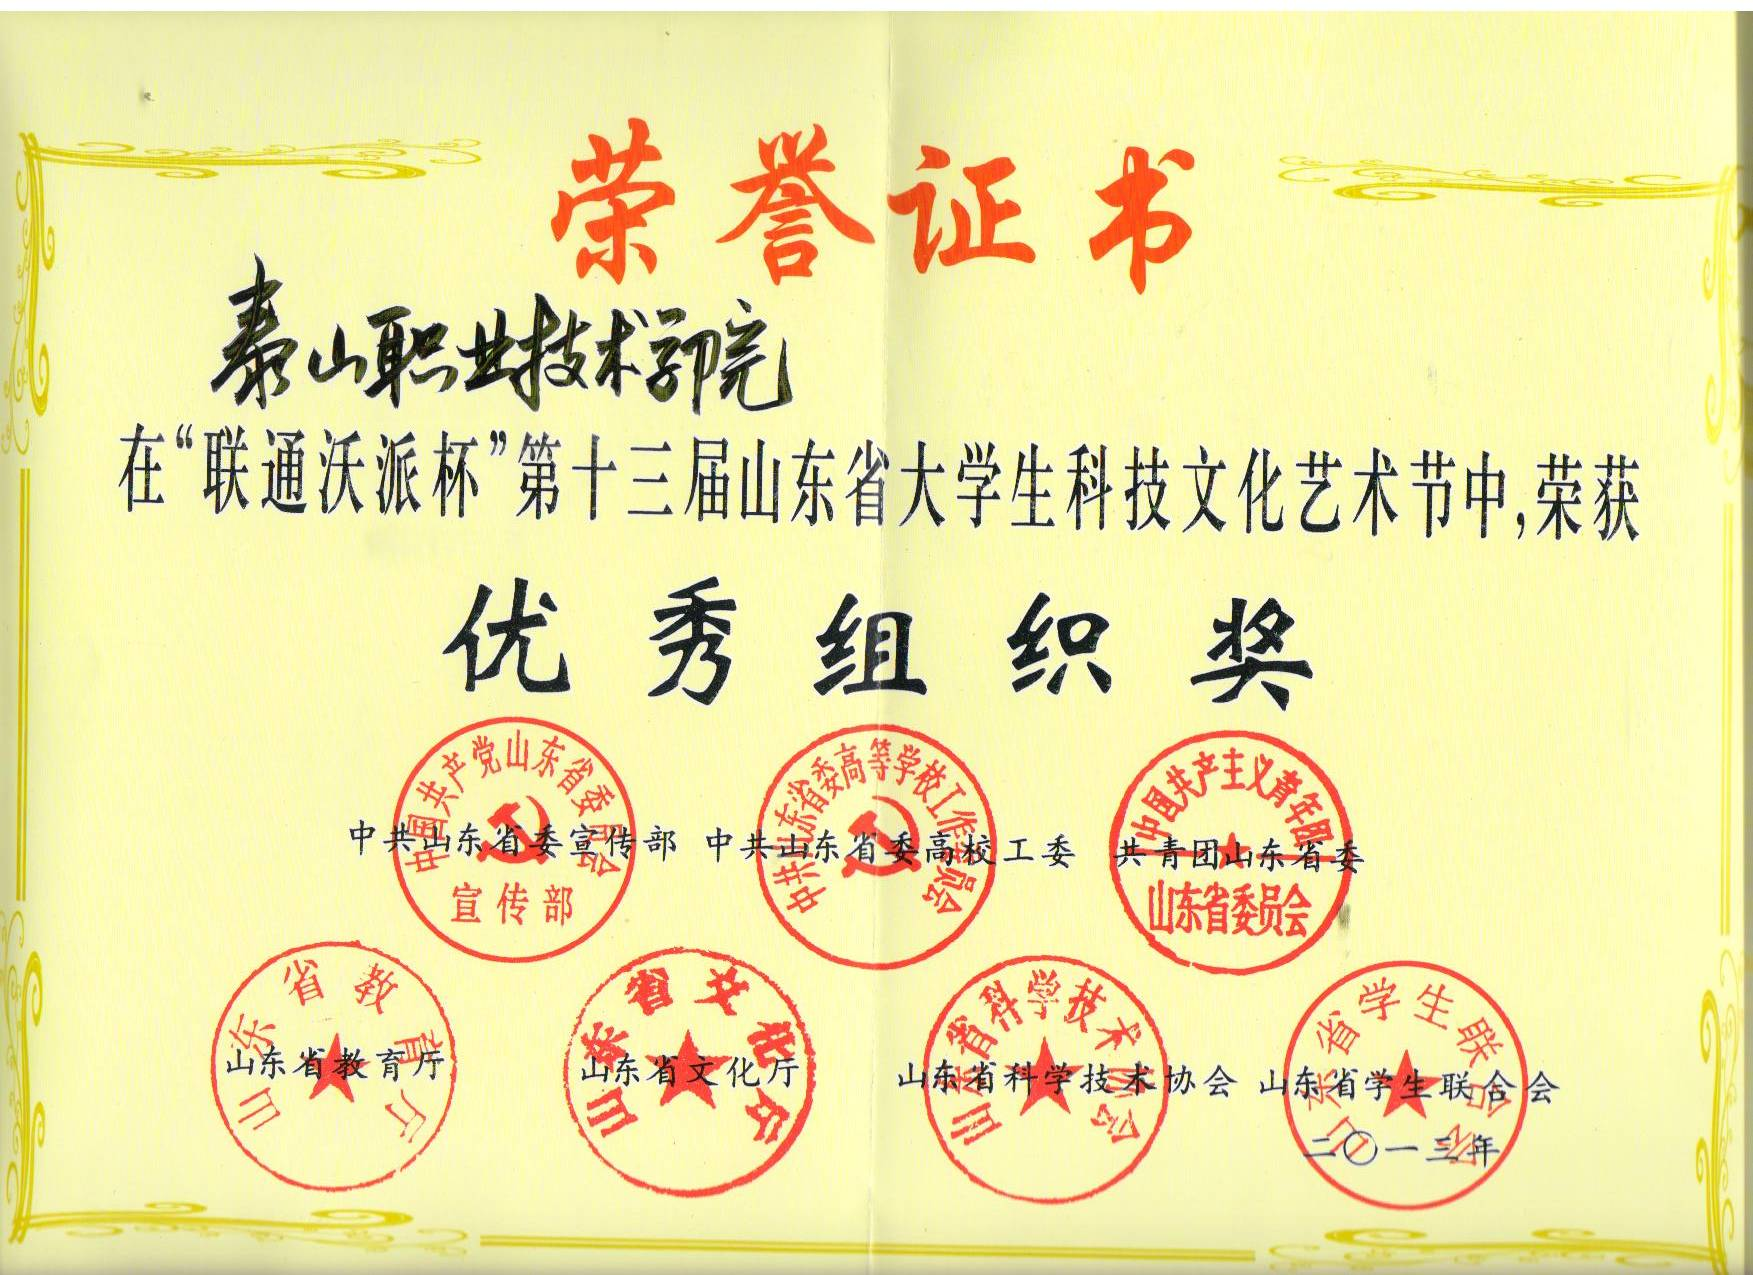 荣誉证书
泰山职业技术学院
在“联通沃派杯”第十三届山东省大学生科技文化艺术节中,荣获
优秀组织奖
中国共产党山东省委员会
宣传部
中共山东省委高等学校工作委员会
中国共产主义青年团
山东省委员会
中共山东省委宣传部 中共山东省委高校工委 共青团山东省委
山东省教育厅
山东省文化厅
山东省科学技术协会
山东省学生联合会
山东省教育厅 山东省文化厅 山东省科学技术协会 山东省学生联合会
二〇一三年